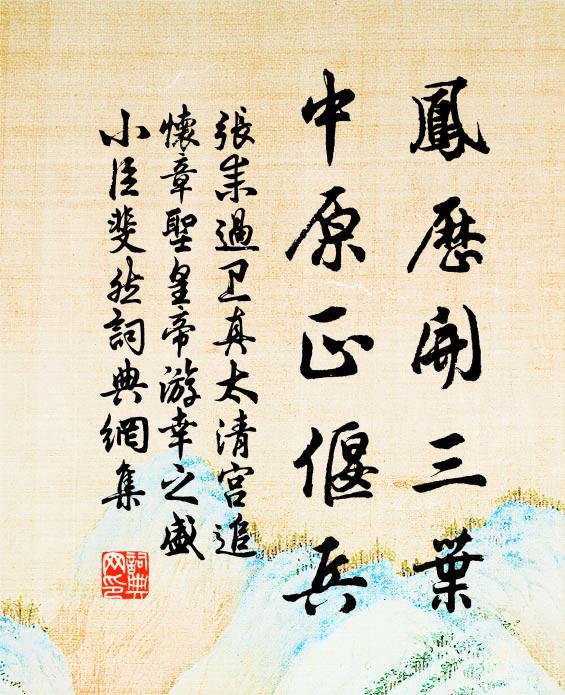 鳳歷開三葉
中原正偃兵
張耒過卫真太清宮追
懷章聖皇帝游幸之盛
小臣斐然詞典網集
詞典
网印